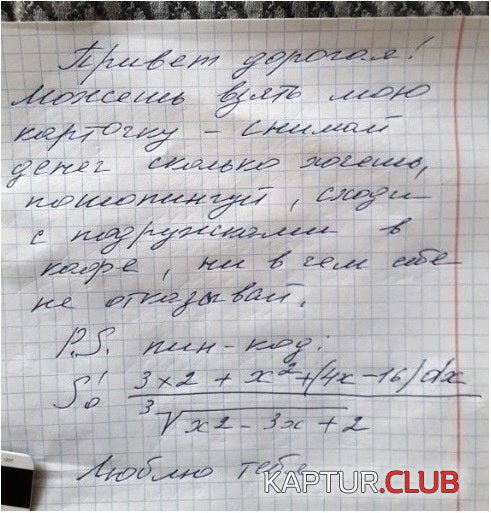 Привет дорогая!
Можешь взять мою
карточку – снимай
денег сколько хочешь,
пошопингуй, сходи
с подружками в
кафе, ни в чем себе
не отказывай.
P.S. пин-код:
∫₀¹ (3x2 + x² + (4x – 16) dx) / ³√(x2 – 3x + 2)
Люблю тебя
KAPTUR.CLUB